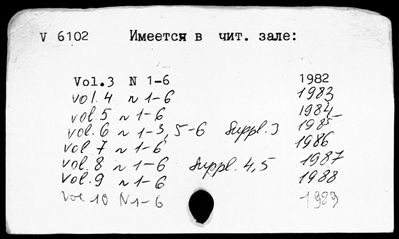 V 6102 Имеется в чит. зале:
Vol.3 N 1-6 1982
vol.4 n 1-6 1983
vol 5 n 1-6 1984
vol.6 n 1-3, 5-6 Suppl.3 1985
vol 7 n 1-6 1986
vol.8 n 1-6 Suppl.4,5 1987
vol.9 n 1-6 1988
vol 10 N 1-6 1989